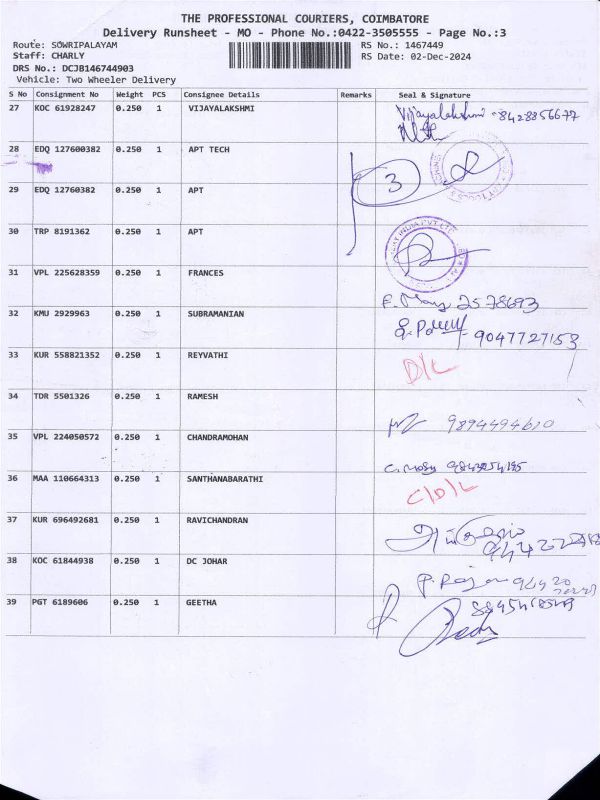 THE PROFESSIONAL COURIERS, COIMBATORE
Delivery Runsheet - MO - Phone No.:0422-3505555 - Page No.:3
Route: SOWRIPALAYAM RS No.: 1467449
Staff: CHARLY RS Date: 02-Dec-2024
DRS No.: DCJB146744903
Vehicle: Two Wheeler Delivery
S No Consignment No Weight PCS Consignee Details Remarks Seal & Signature
27 KOC 61928247 0.250 1 VIJAYALAKSHMI Vijayalakshmi - 8428856677
28 EDQ 127600382 0.250 1 APT TECH
29 EDQ 12760382 0.250 1 APT 3
30 TRP 8191362 0.250 1 APT
31 VPL 225628359 0.250 1 FRANCES 2578693
32 KMU 2929963 0.250 1 SUBRAMANIAN 9047727153
33 KUR 558821352 0.250 1 REYVATHI D/L
34 TDR 5501326 0.250 1 RAMESH 9894494610
35 VPL 224050572 0.250 1 CHANDRAMOHAN
36 MAA 110664313 0.250 1 SANTHANABARATHI C/D/L
37 KUR 696492681 0.250 1 RAVICHANDRAN
38 KOC 61844938 0.250 1 DC JOHAR
39 PGT 6189606 0.250 1 GEETHA